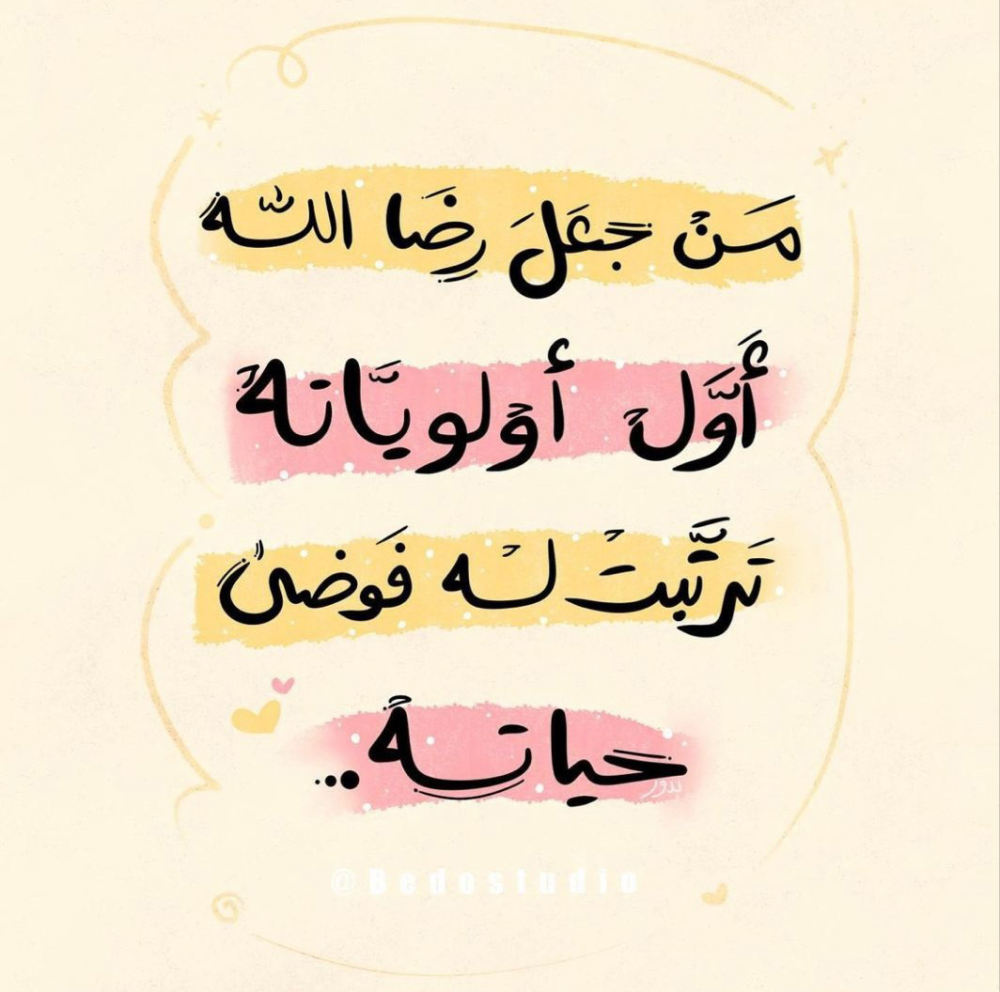 مَنْ جَعَلَ رِضَا اللّه
أَوَّلَ أولويَّاتهُ
تَرتَّبتْ لهُ فَوضىٰ
حياتهُ...
بدور
@Bedostudio